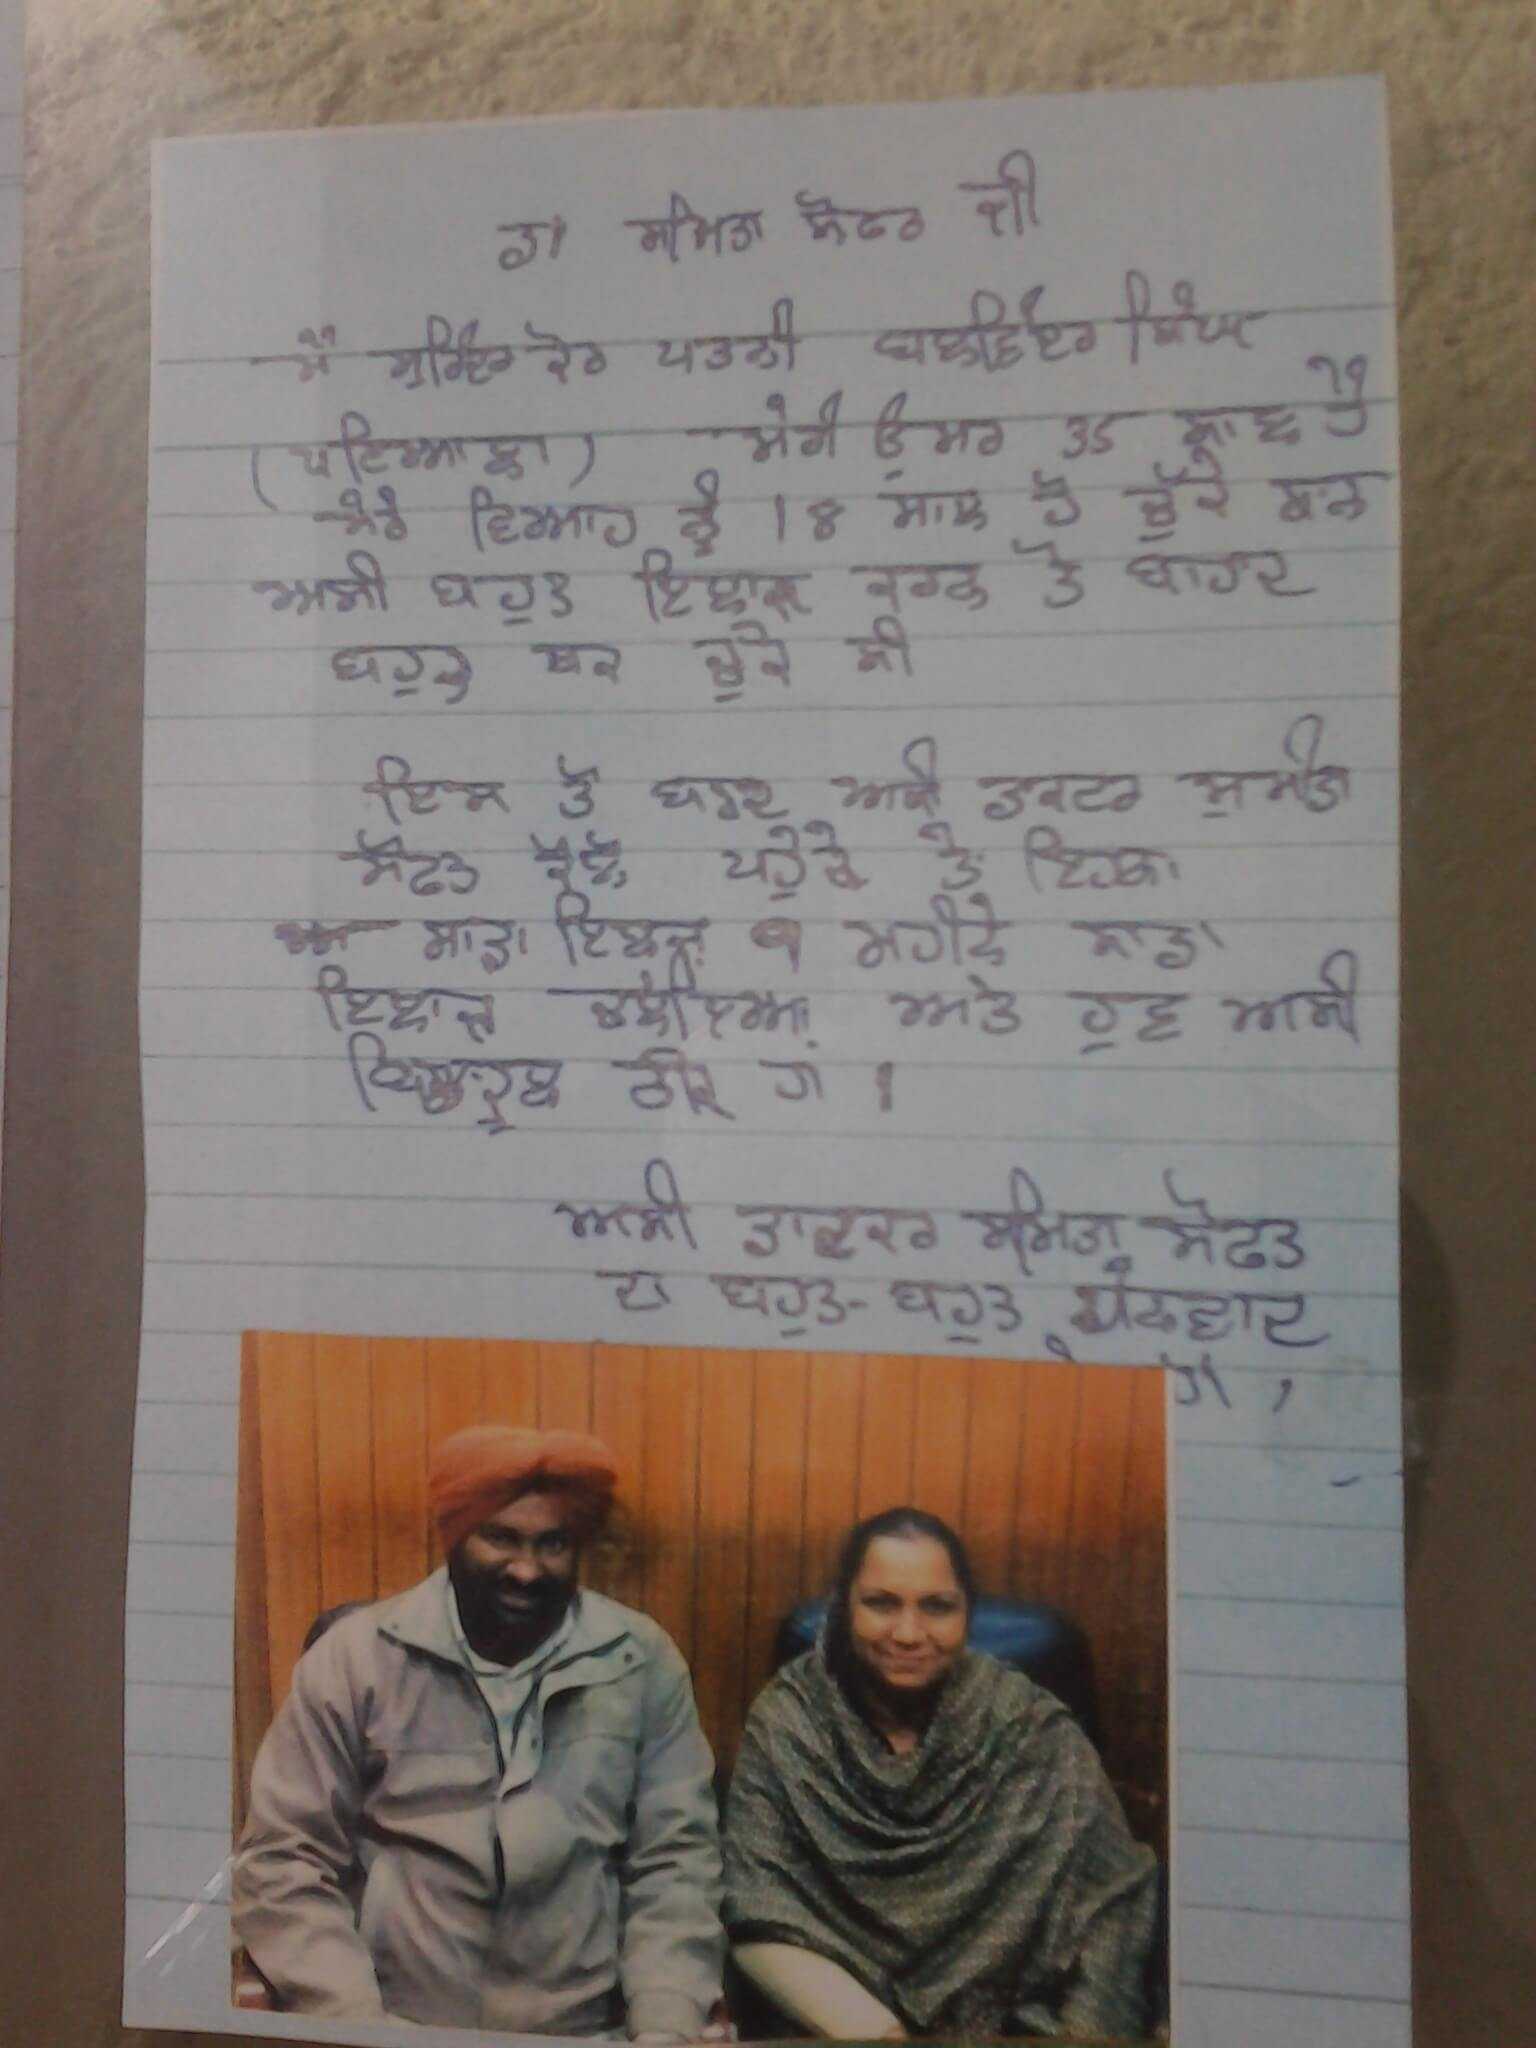 ਡਾ ਸੁਮਿਤਾ ਸੋਫਤ ਜੀ
ਮੈਂ ਸੁਰਿੰਦਰ ਕੋਰ ਪਤਨੀ ਬਲਵਿੰਦਰ ਸਿੰਘ
(ਪਟਿਆਲਾ) ਮੇਰੀ ਉਮਰ 35 ਸਾਲ ਹੈ
ਮੇਰੇ ਵਿਆਹ ਨੂੰ 18 ਸਾਲ ਹੋ ਚੁੱਕੇ ਸਨ
ਅਸੀ ਬਹੁਤ ਇਲਾਜ ਕਰਨ ਤੋ ਬਾਅਦ
ਬਹੁਤ ਥਕ ਚੁਕੇ ਸੀ
ਇਸ ਤੋਂ ਬਾਅਦ ਅਸੀ ਡਾਕਟਰ ਸੁਮੀਤਾ
ਸੋਫਤ ਕੋਲ ਪਹੁੰਚੇ ਤੇ
ਸਾਡਾ ਇਲਾਜ 9 ਮਹੀਨੇ ਸਾਡਾ
ਇਲਾਜ ਚੱਲਿਆ ਅਤੇ ਹੁਣ ਅਸੀ
ਬਿਲਕੁਲ ਠੀਕ ਹਾਂ ।
ਅਸੀ ਡਾਕਟਰ ਸੁਮਿਤਾ ਸੋਫਤ
ਦਾ ਬਹੁਤ-ਬਹੁਤ ਧੰਨਵਾਦ